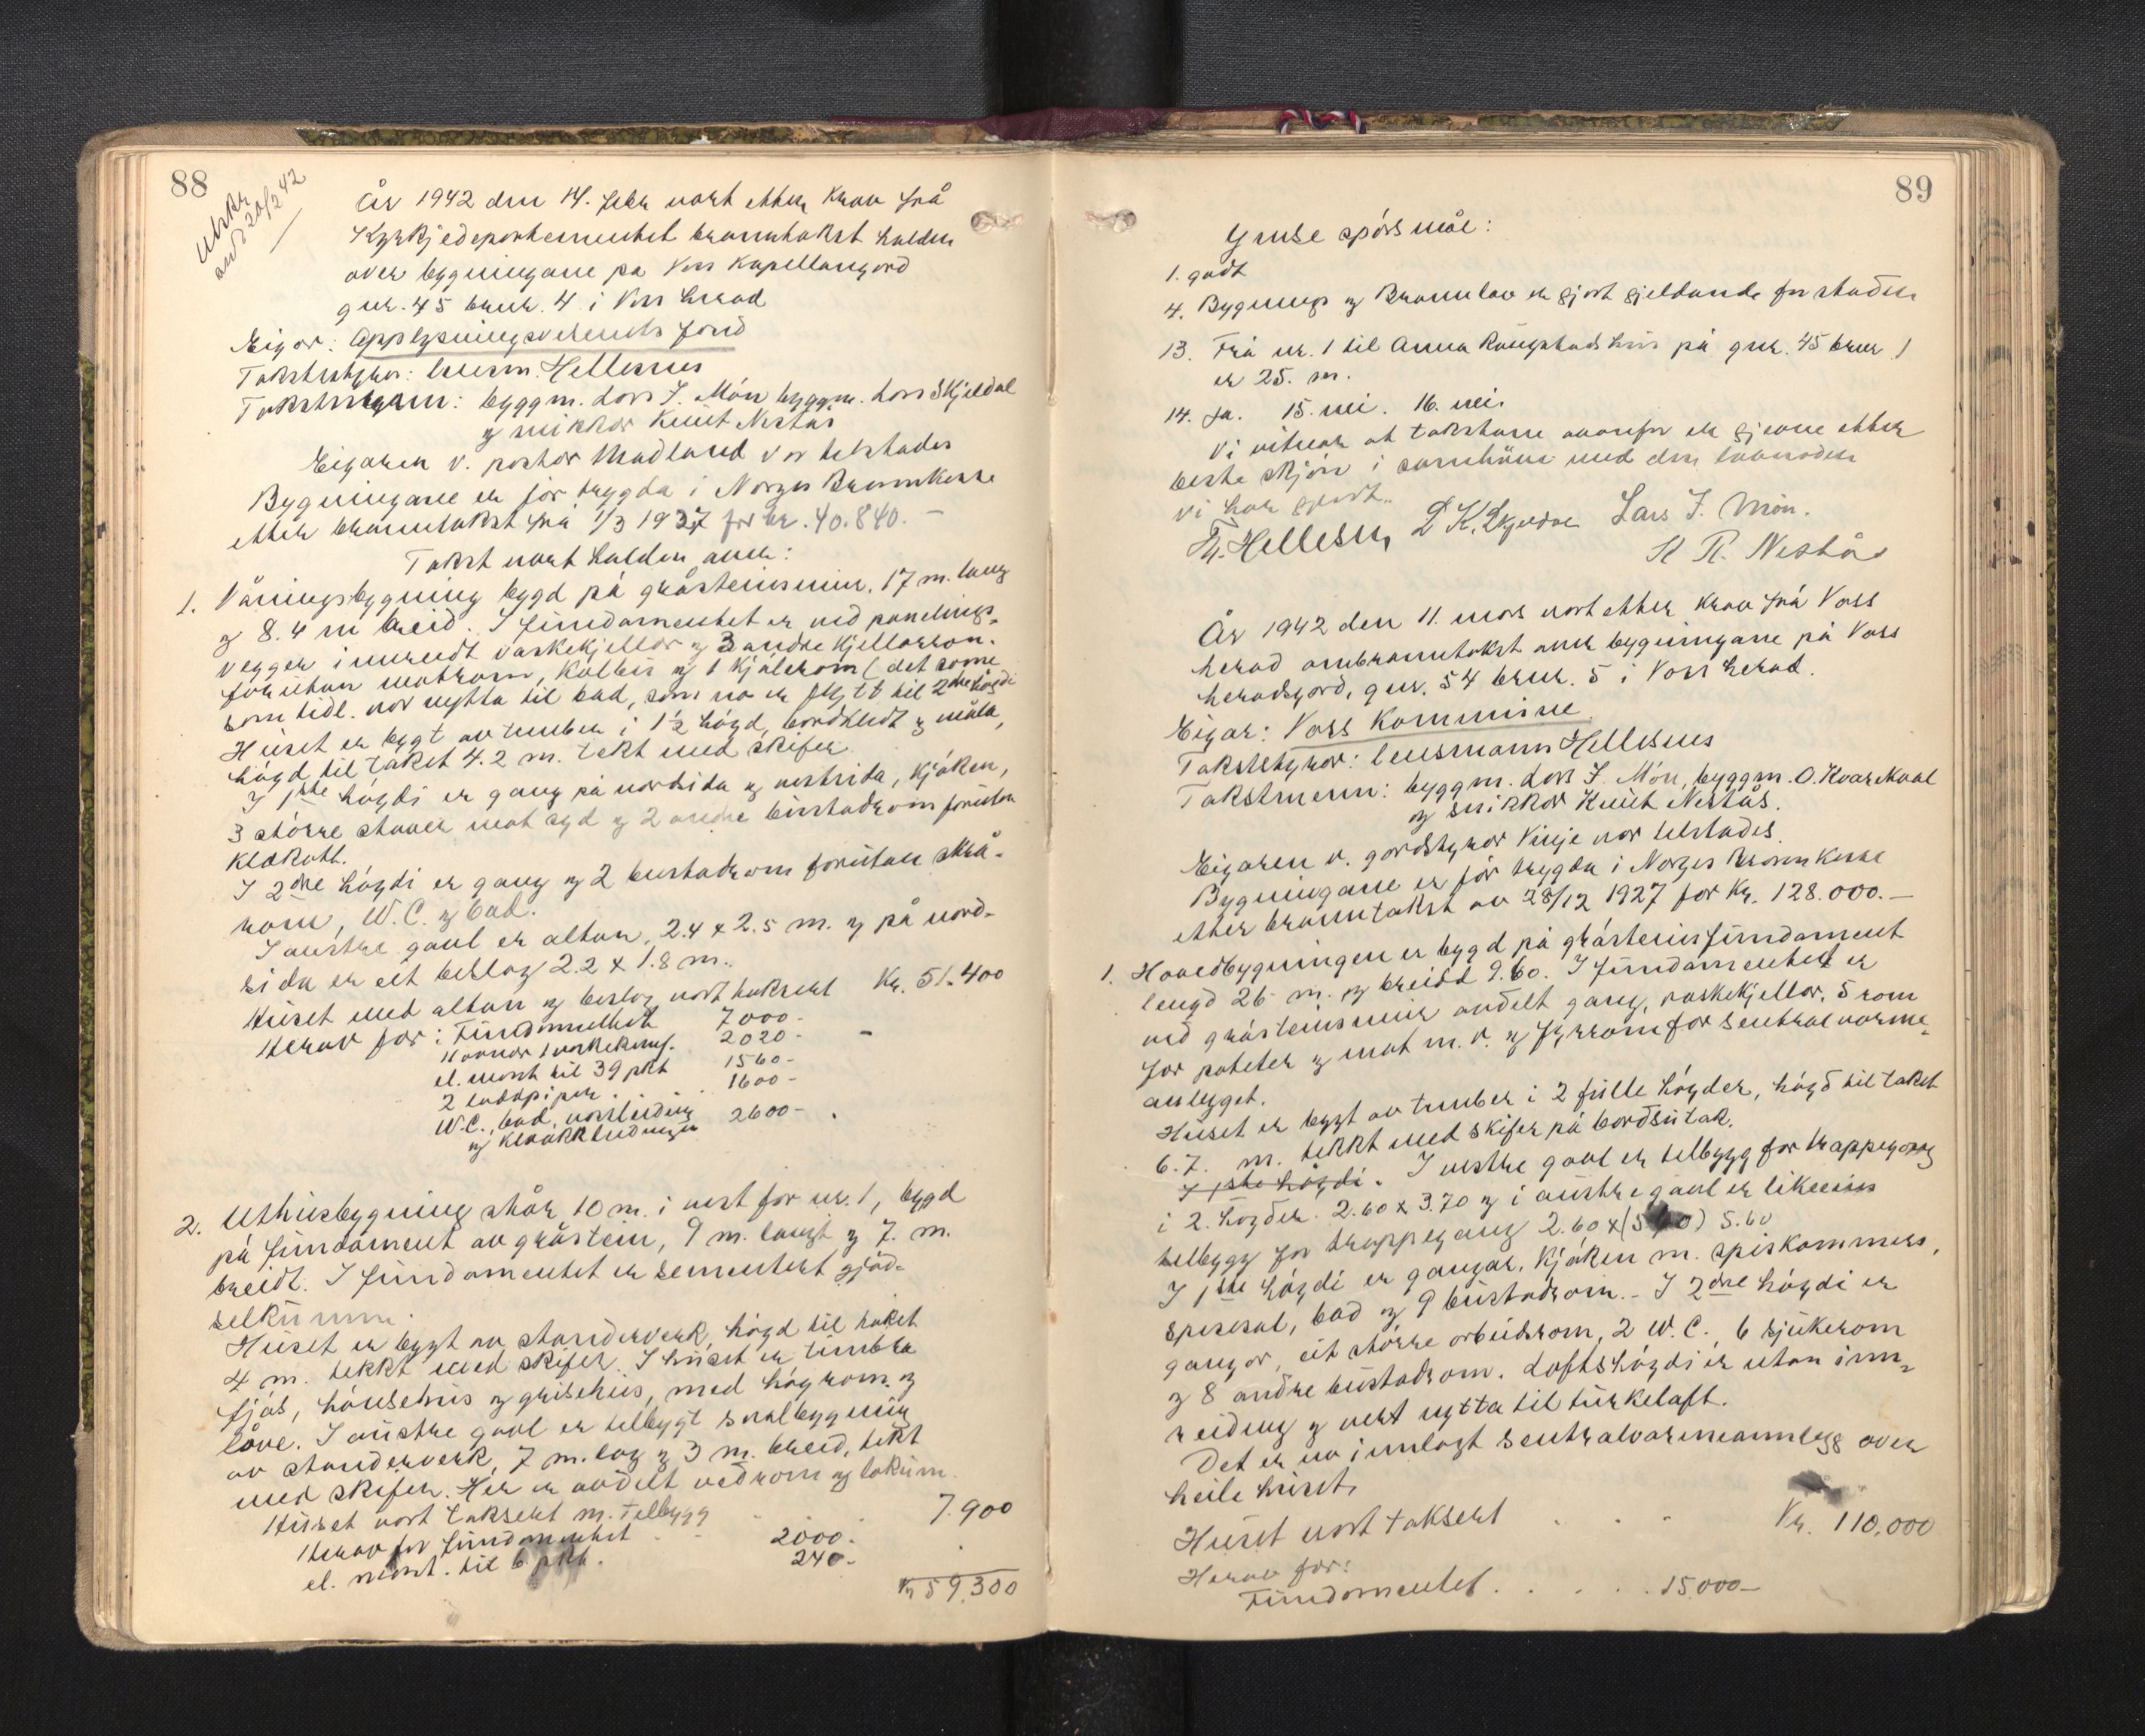 88
Utskr
av 20/2 42
År 1942 den 14. febr vart etter krav frå
Kyrkjedepartementet branntakst halden
over bygningane på Voss Kapellangard
gnr. 45 bnr. 4 i Voss herad
Eigar: Opplysningsvesenets fond
Takststyrar: lensm. Hellesnes
Takstmenn: byggm. Lars J. Møn byggm. Lars Skjeldal
og snikkar Knut Nestås
Eigaren v. pastor Madland var tilstades
Bygningane er før trygda i Norges Brannkasse
etter branntakst frå 1/3 1937 for kr. 40.840.-
Takst vart halden over:
1. Våningsbygning bygd på gråsteinsmur. 17 m. lang
og 8.4 m breid. I fundamentet er ved panelings-
vegger innreidt vaskekjellar og 3 andre kjellarrom.
forutan matrom, kolbu og 1 kjølerom (det same
som tidl. var nytta til bad, som no er flytt til 2dre høgdi
Huset er bygt av tømber i 1½ høgd, bordkledt og måla,
høgd til taket 4.2 m. tekt med skifer
I 1ste høgdi er gang på nordsida og vestsida, kjøken,
3 større stover mot syd og 2 andre bustadrom forutan
klæskott.
I 2dre høgdi er gang og 2 bustadrom forutan skrå-
rom, W.C. og bad.
I austre gavl er altan, 2.4 x 2.5 m. og på nord-
sida er eit bislag 2.2 x 1.8 m.
Huset med altan og bislag vart taksert Kr. 51.400
Herav for: Fundamentet 7000-
1 komnar 1 vaskekomf. 2020- -
el. mont til 39 pkt 1560-
2 luftpipar 1600-
W.C., bad, vassleiding
og kloakkleidningen 2600-
2. Uthusbygning står 10 m. i vest for nr. 1, bygd
på fundament av gråstein, 9 m. langt og 7. m.
breidt. I fundamentet er sementert gjød-
selkum.
Huset er bygt av standerverk, høgd til taket
4 m. tekkt med skifer. I huset er timbra
fjøs, hønsehus og grisehus, med høgrom og
låve. I austre gavl er tilbygt svalbygning
av standerverk, 7 m. lag og 3 m. breid, tekt
med skifer. Her er avdelt vedrom og lokum.
Huset vart taksert m. tilbygg 7.900
Herav for fundamentet 2000-
el. mont. til 6 pkt. 240-
Kr 59.300
89
Ymse spørsmål:
1. godt
4. Bygnings og Brannlov er gjort gjeldande for staden
13. Frå nr. 1 til Anna Rongstads hus på gnr. 45 bnr 1
er 25. m.
14. Ja. 15. nei. 16. nei.
Vi vitnar at takstane ovanfor er gjevne etter
beste skjøn i samhøve med den lovnaden
vi har gjort.
Hellesnes L K. Skjeldal Lars J. Møn.
K R. Nestås
År 1942 den 11. mars vart etter krav frå Voss
herad ombranntakst over bygningane på Voss
heradsgard, gnr. 54 bnr. 5 i Voss herad.
Eigar: Voss Kommune
Takststyrar: lensmann Hellesnes
Takstmenn: byggm. Lars J. Møn, byggm. O. Kvarekval
og snikkar Knut Nestås.
Eigaren v. gardstyrar Vinje var tilstades.
Bygningane er før trygda i Norges Brannkasse
etter branntakst av 28/12 1927 for Kr. 128.000.-
1. Hovedbygningen er bygd på gråsteinsfundament
lengd 26 m. og breidd 9.60. I fundamentet er
ved gråsteinsmur avdelt gang, vaskekjellar, 5 rom
for poteter og mat m. v. og fyrrom for sentralvarme-
anlegget.
Huset er bygt av tømber i 2 fulle høgder, høgd til taket
6.7. m. tekkt med skifer på bordsutak.
I 1ste høgdi. I vestre gavl er tilbygg for trappegang
i 2. høgder. 2.60 x 3.70 og i austre gavl er likeeins
tilbygg for trappegang 2.60 x (5 0) 5.60
I 1ste høgdi er gangar, kjøken m. spiskammers,
spisesal, bad og 9 bustadrom. - I 2dre høgdi er
gangar, eit større arbeidsrom, 2 W.C. 6 sjukerom
og 8 andre bustadrom. Loftshøgdi er utan inn-
reiding og vert nytta til turkeloft.
Det er no innlagt sentralvarmeanlegg over
heile huset.
Huset vart taksert . . . Kr. 110,000
Herav for:
Fundamentet . . . . 15.000-